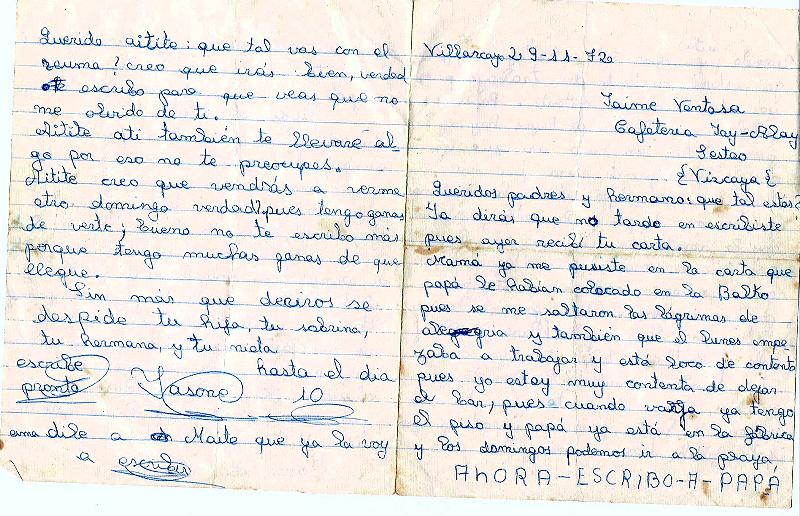 Villarcayo 29-11-72
Jaime Ventosa
Cafeteria Jay-Alay
Sestao
{Vizcaya{
Queridos padres y hermano: que tal estas?
Ya dirás que no tardo en escribiste
pues ayer recibí tu carta.
Mamá ya me pusiste en la carta que
papá le habían colocado en la Balko
pues se me saltaron las lágrimas de
alegria y también que el lunes empe
zaba a trabajar y está loco de contento
pues yo estoy muy contenta de dejar
el bar, pues cuando vaya ya tengo
el piso y papá ya está en la fábrica
y los domingos podemos ir a la praya,
AhORA-ESCRIBO-A-PAPA
Querido aitite: que tal vas con el
reuma? creo que irás bien, verdad
escribo para que veas que no
me olvido de ti.
Aitite ati también te llevaré al-
go por eso no te preocupes.
Aitite creo que vendrás a verme
otro domingo verdad? pues tengo ganas
de verte; bueno no te escribo más
porque tengo muchas ganas de que
llegue.
Sin más que deciros se
despide tu hija, tu sobrina,
tu hermana, y tu nieta
escribe pronto
Yasone
hasta el dia
10
ama dile a Maite que ya la voy
a escribir